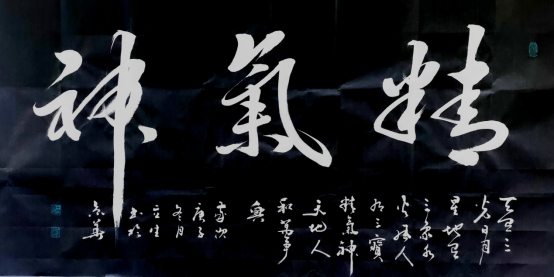 精氣神
天有三
光日月
星地有
三宝水
火風人
有三寳
精氣神
天地人
和萬事
興
歲次
庚子
冬月
立生
书於
京華